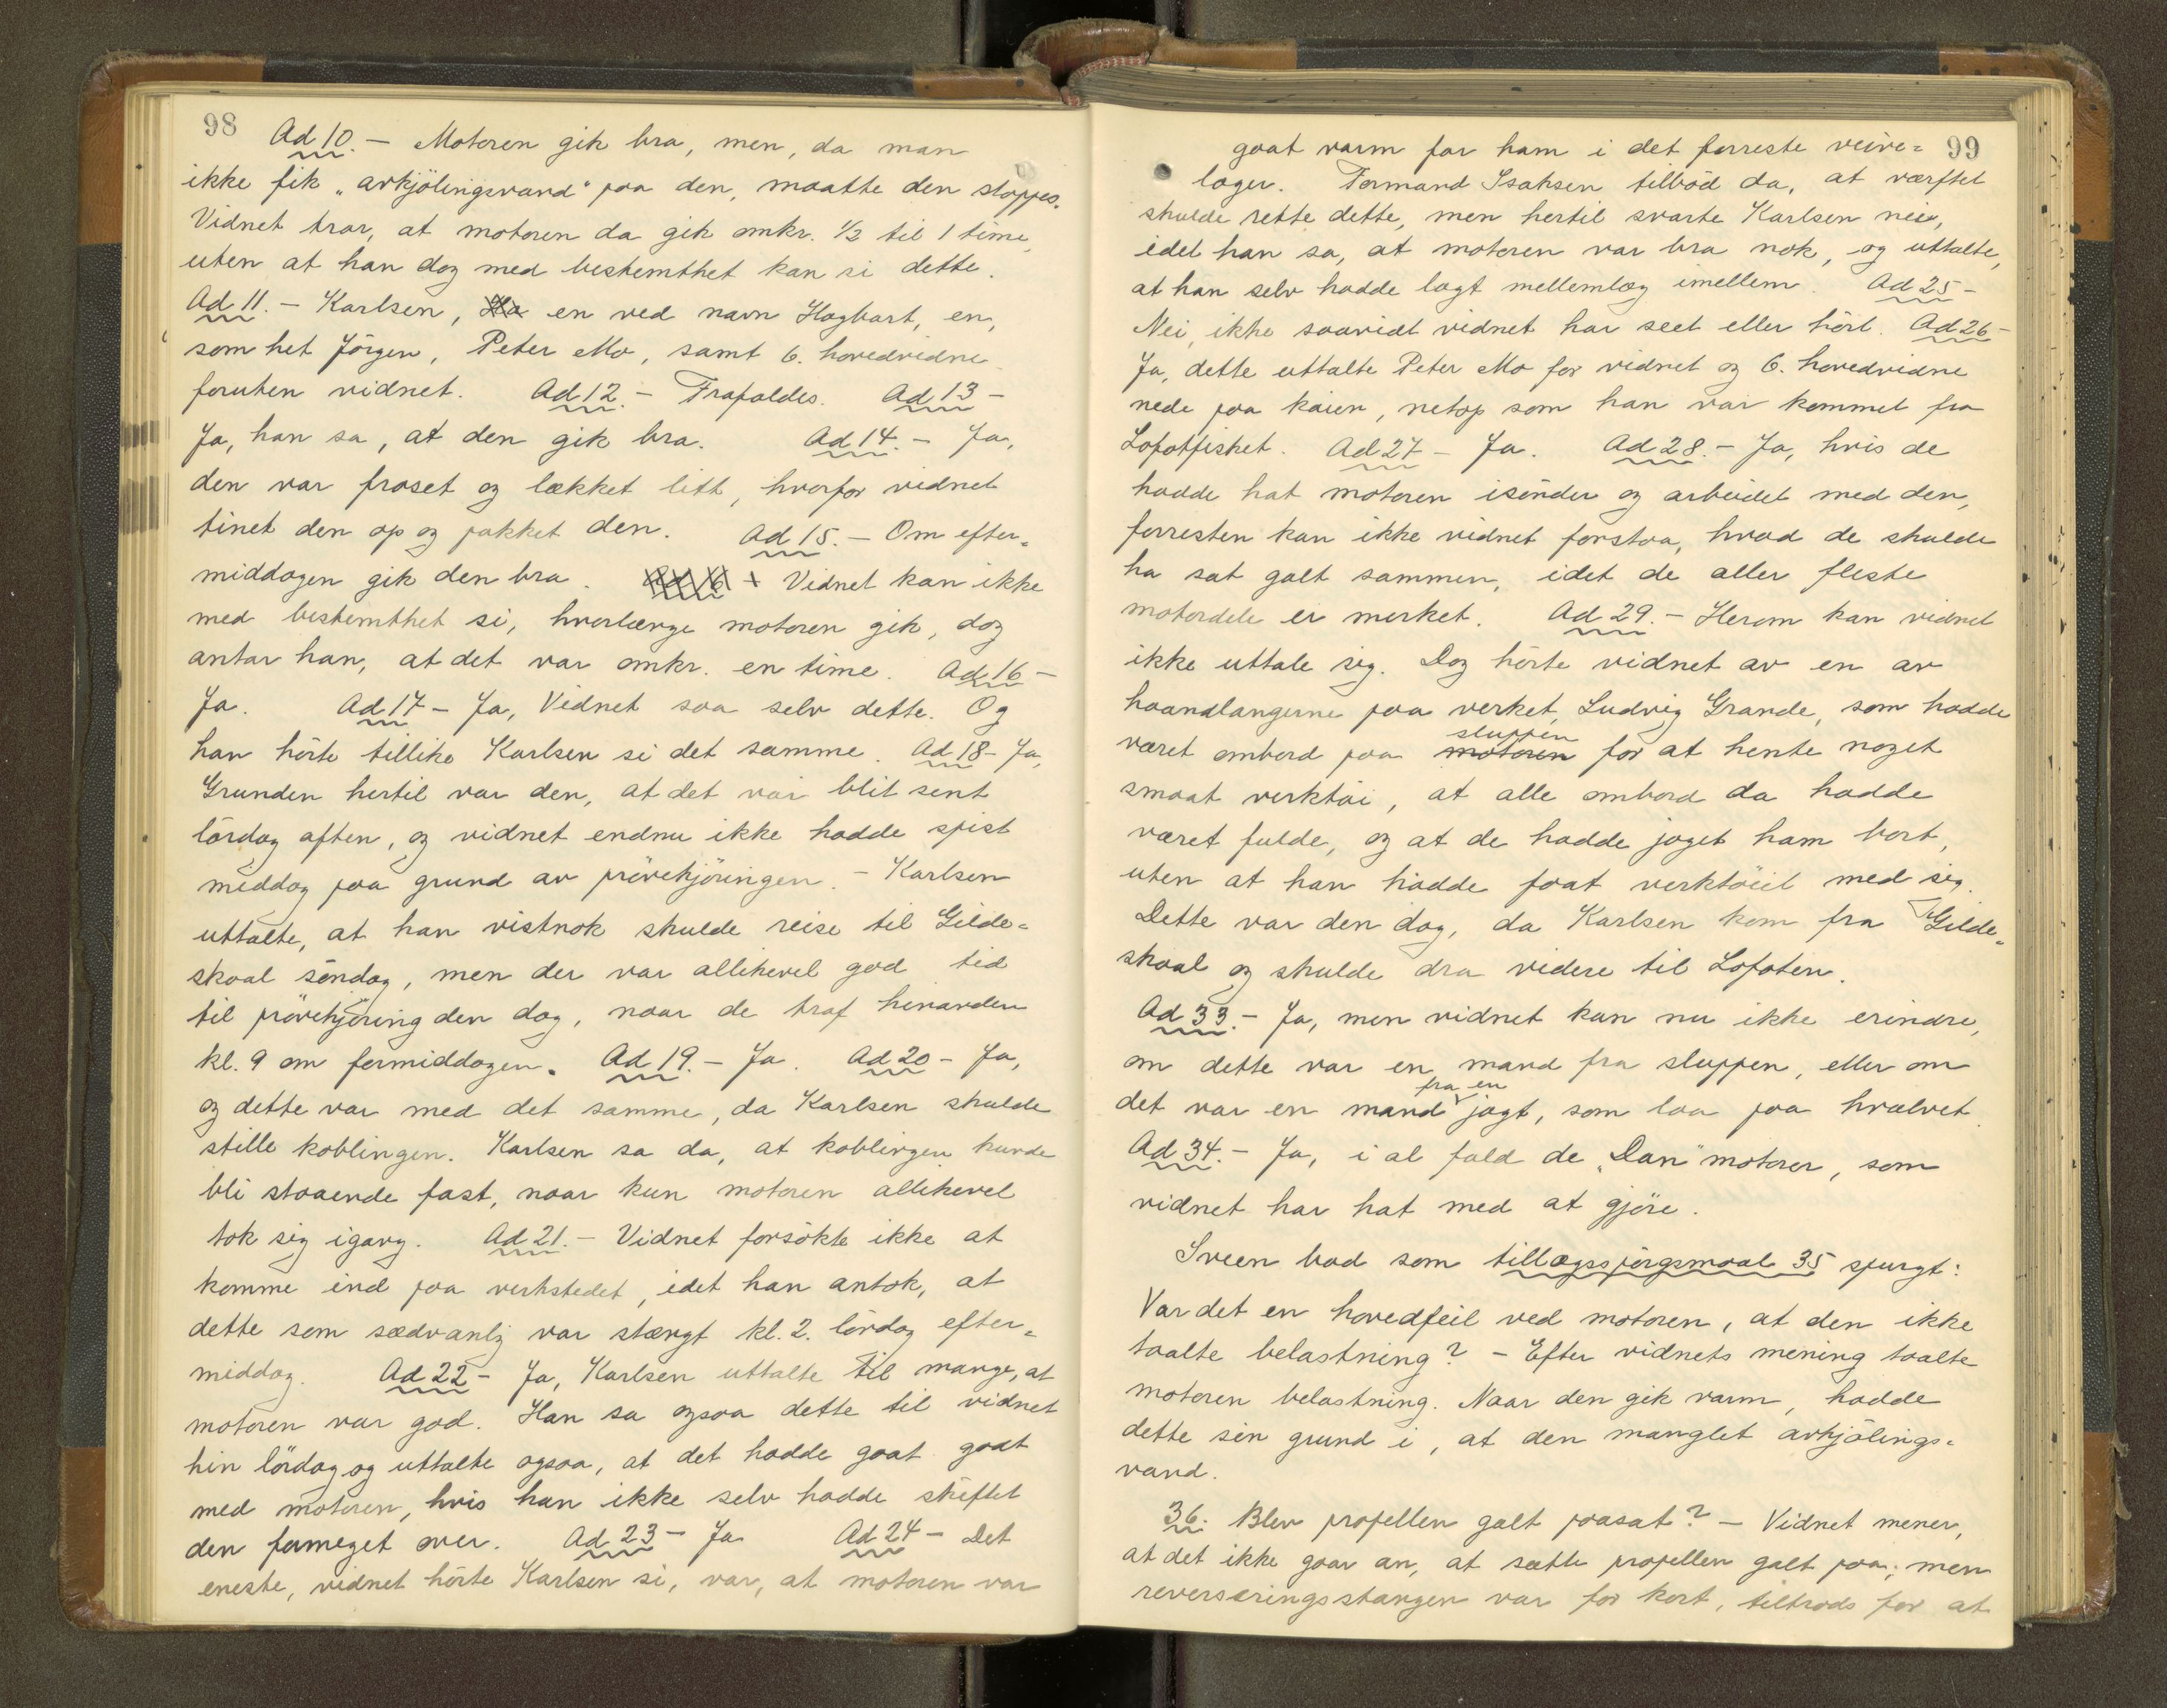 98
Ad 10. – Motoren gik bra, men, da man
ikke fik „avkjölingsvand" paa den, maatte den stoppes.
Vidnet tror, at motoren da gik omkr. ½ til 1 time,
uten at han dog med bestemthet kan si dette.
Ad 11. – Karlsen, Ha en ved navn Hagbart, en,
som het Jörgen, Peter Mo, samt 6. hovedvidne
foruten vidnet. Ad 12. – Frafaldes. Ad 13 –
Ja, han sa, at den gik bra. Ad 14. – Ja,
den var froset og lækket litt, hvorfor vidnet
tinet den op og pakket den. Ad 15. – Om efter=
middagen gik den bra. Ad 16 – Vidnet kan ikke
med bestemthet si, hvorlænge motoren gik, dog
antar han, at det var omkr. en time. Ad 16 –
Ja. Ad 17 – Ja, Vidnet saa selv dette. Og
han hörte tillike Karlsen si det samme. Ad 18 – Ja,
Grunden hertil var den, at det var blit sent
lördag aften, og vidnet endnu ikke hadde spist
middag paa grund av prövekjöringen. – Karlsen
uttalte, at han vistnok skulde reise til Gilde=
skaal söndag, men der var allikevel god tid
til prövekjöring den dag, naar de traf hinanden
kl. 9 om formiddagen. Ad 19. – Ja. Ad 20 – Ja,
og dette var med det samme, da Karlsen skulde
stille koblingen. Karlsen sa da, at koblingen kunde
bli staaende fast, naar kun motoren allikevel
tok sig igang. Ad 21. – Vidnet forsökte ikke at
komme ind paa verkstedet, idet han antok, at
dette som sædvanlig var stængt kl. 2. lördag efter=
middag. Ad 22 – Ja, Karlsen uttalte til mange, at
motoren var god. Han sa ogsaa dette til vidnet
hin lördag og uttalte ogsaa, at det hadde gaat godt
med motoren, hvis han ikke selv hadde skiftet
den formeget over. Ad 23 – Ja Ad 24 – Det
eneste, vidnet hörte Karlsen si, var, at motoren var
99
gaat varm for ham i det forreste veive=
lager. Formand Isaksen tilböd da, at værftet
skulde rette dette, men hertil svarte Karlsen nei,
idet han sa, at motoren var bra nok, og uttalte,
at han selv hadde lagt mellemlæg imellem. Ad 25 –
Nei, ikke saavidt vidnet har seet eller hört. Ad 26 –
Ja, dette uttalte Peter Mo for vidnet og 6. hovedvidne
nede paa kaien, netop som han var kommet fra
Lofotfisket. Ad 27 – Ja. Ad 28. – Ja, hvis de
hadde hat motoren isönder og arbeidet med den,
forresten kan ikke vidnet forstaa, hvad de skulde
ha sat galt sammen, idet de aller fleste
motordele er merket. Ad 29. – Herom kan vidnet
ikke uttale sig. Dog hörte vidnet av en av
haandlangerne paa verket, Ludvig Grande, som hadde
sluppen
været ombord paa motoren for at hente noget
smaat verktöi, at alle ombord da hadde
været fulde, og at de hadde jaget ham bort,
uten at han hadde faat verktöiet med sig.
Dette var den dag, da Karlsen kom fra Gilde=
skaal og skulde dra videre til Lofoten.
Ad 33. – Ja, men vidnet kan nu ikke erindre,
om dette var en mand fra sluppen, eller om
fra en
det var en mand jagt, som laa paa hvælvet.
Ad 34. – Ja, i al fald de „Dan" motorer, som
vidnet har hat med at gjöre.
Sveen bad som tillægsspörgsmaal 35 spurgt:
Var det en hovedfeil ved motoren, at den ikke
taalte belastning? – Efter vidnets mening taalte
motoren belastning. Naar den gik varm, hadde
dette sin grund i, at den manglet avkjölings=
vand.
36. Blev propellen galt paasat? – Vidnet mener,
at det ikke gaar an, at sætte propellen galt paa; men
reverseringsstangen var for kort, tiltrods for at